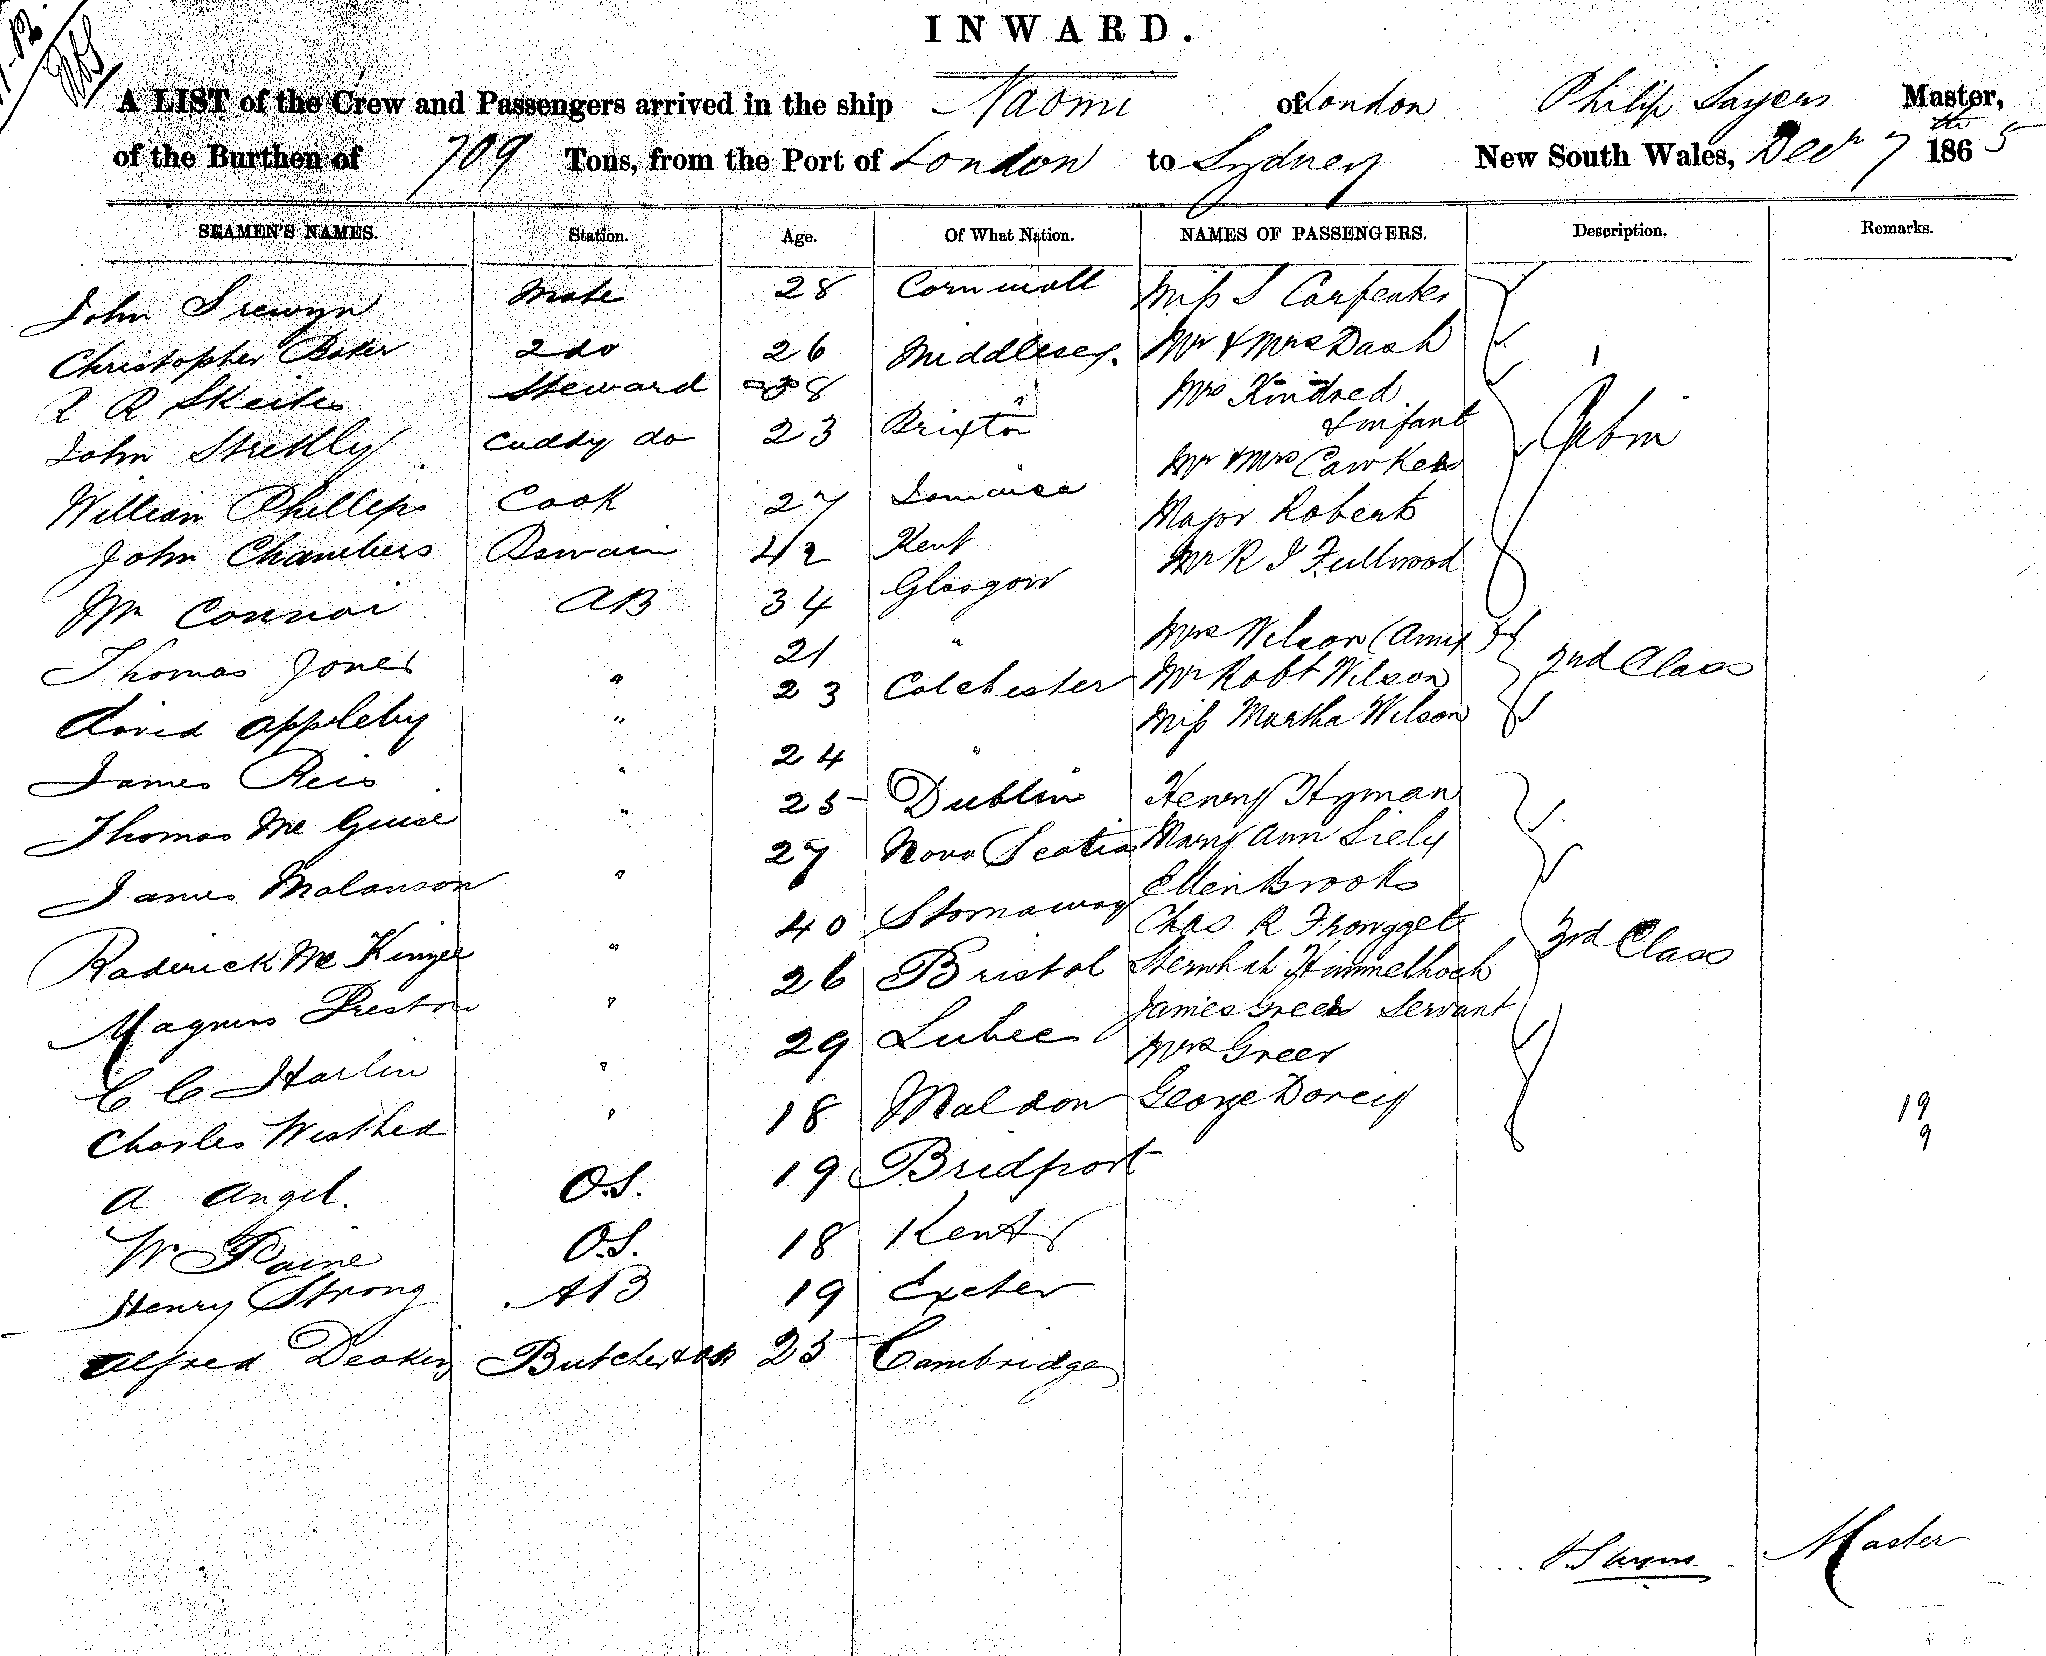 INWARD.
A LIST of the Crew and Passengers arrived in the ship Naomi of London Philip Sayers Master,
of the Burthen of 709 Tons, from the Port of London to Sydney New South Wales, Decr 7th 1865
SEAMEN'S NAMES. Station. Age. Of What Nation. NAMES OF PASSENGERS. Description. Remarks.
John Trewyn Mate 28 Cornwall Miss S Carpenter
Christopher Baker 2 do 26 Middlesex. Mr & Mrs Dash
R Skeites Steward 38 " Mrs Kindred
& infant
John Stretlly Cuddy do 23 Brixton Mr & Mrs Cawker Cabin
William Phillips Cook 27 Jamaica Major Roberts
John Chambers Bswain 42 Kent Mr R J Fullwood
Wm Connor AB 34 Glasgow
Thomas Jones " 21 " Mrs Wilson (Amy) 2nd Class
David Appleby " 23 Colchester Mr Robt Wilson
Miss Martha Wilson
James Reis " 24 "
Thomas Mc Guise " 25 Dublin Henry Hyman
James Malanson " 27 Nova Scotia Mary Ann Siely
Ellen Brooks
Roderick Mc Kinzee " 40 Stornaway Chas R Fronggett 3rd Class
Magnus Preston " 26 Bristol Himmelhoch
James Greer Servant
C C Harlin " 29 Lubec Mrs Greer
Charles Westhed " 18 Maldon George Dorey 19
9
A Angel. O.S. 19 Bridport
W Paine O.S. 18 Kent
Henry Strong AB 19 Exeter
Alfred Deakin Butcher & AB 25 Cambridge
P Sayers Master